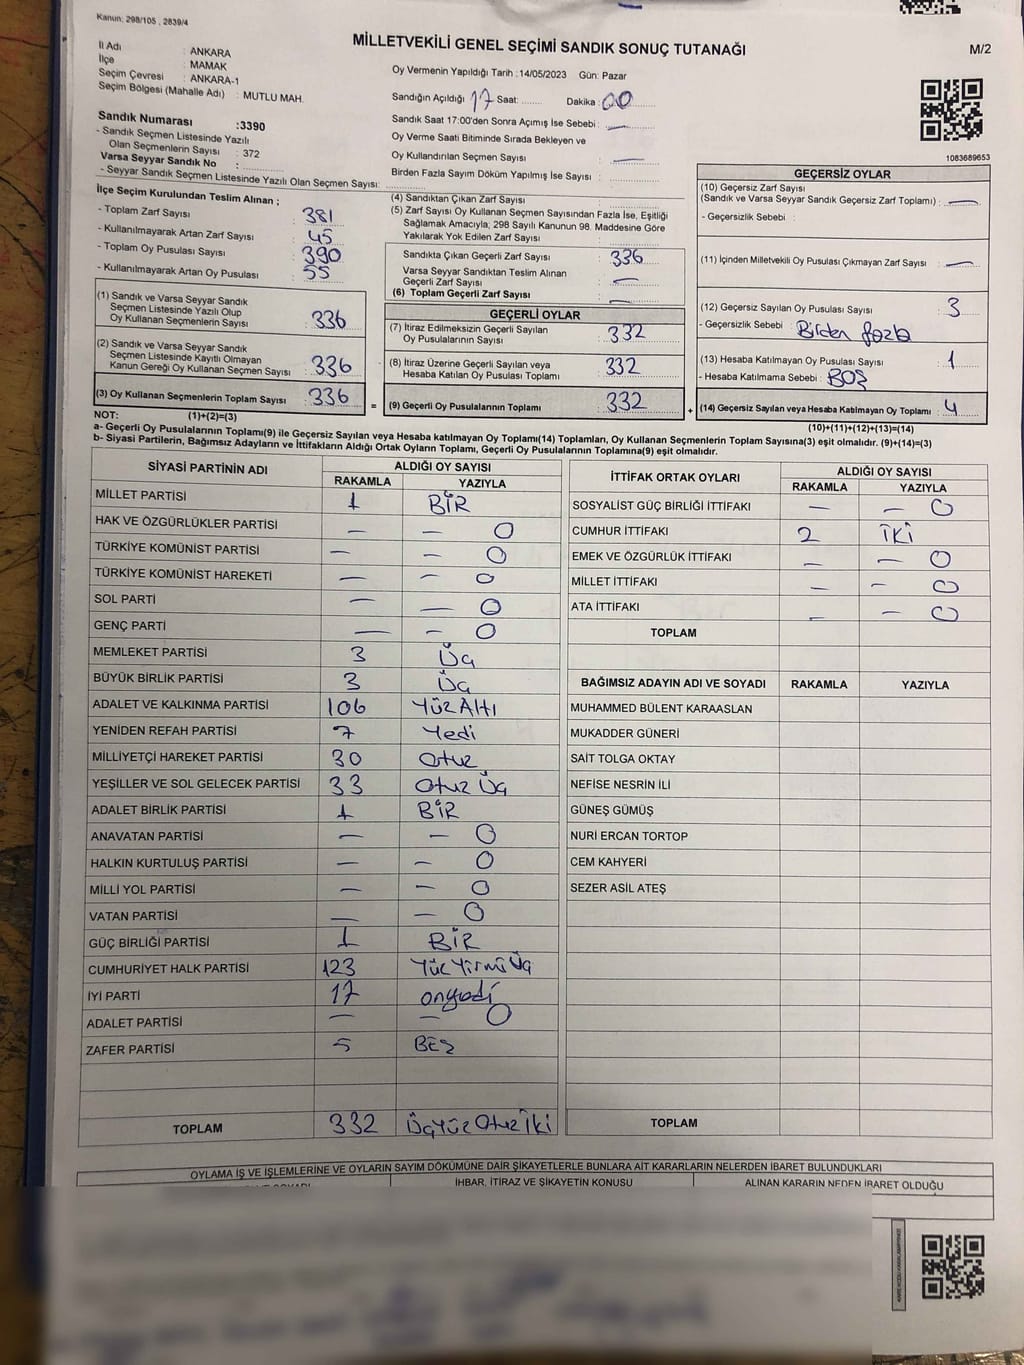 Kanun: 298/105 , 2839/4
MİLLETVEKİLİ GENEL SEÇİMİ SANDIK SONUÇ TUTANAĞI
M/2
İl Adı : ANKARA
İlçe : MAMAK
Seçim Çevresi : ANKARA-1
Seçim Bölgesi (Mahalle Adı) : MUTLU MAH.
Sandık Numarası :3390
- Sandık Seçmen Listesinde Yazılı
Olan Seçmenlerin Sayısı : 372
Varsa Seyyar Sandık No :
- Seyyar Sandık Seçmen Listesinde Yazılı Olan Seçmen Sayısı:
Oy Vermenin Yapıldığı Tarih :14/05/2023 Gün: Pazar
Sandığın Açıldığı 17 Saat: Dakika : 00
Sandık Saat 17:00'den Sonra Açımış İse Sebebi : —
Oy Verme Saati Bitiminde Sırada Bekleyen ve
Oy Kullandırılan Seçmen Sayısı : —
Birden Fazla Sayım Döküm Yapılmış İse Sayısı :
1083689653
İlçe Seçim Kurulundan Teslim Alınan ;
- Toplam Zarf Sayısı : 381
- Kullanılmayarak Artan Zarf Sayısı : 45
- Toplam Oy Pusulası Sayısı : 390
- Kullanılmayarak Artan Oy Pusulası : 55
(1) Sandık ve Varsa Seyyar Sandık
Seçmen Listesinde Yazılı Olup
Oy Kullanan Seçmenlerin Sayısı : 336
(2) Sandık ve Varsa Seyyar Sandık
Seçmen Listesinde Kayıtlı Olmayan
Kanun Gereği Oy Kullanan Seçmen Sayısı : 336
(3) Oy Kullanan Seçmenlerin Toplam Sayısı : 336
(4) Sandıktan Çıkan Zarf Sayısı :
(5) Zarf Sayısı Oy Kullanan Seçmen Sayısından Fazla İse, Eşitliği
Sağlamak Amacıyla, 298 Sayılı Kanunun 98. Maddesine Göre
Yakılarak Yok Edilen Zarf Sayısı :
Sandıkta Çıkan Geçerli Zarf Sayısı : 336
Varsa Seyyar Sandıktan Teslim Alınan
Geçerli Zarf Sayısı : —
(6) Toplam Geçerli Zarf Sayısı : —
GEÇERLİ OYLAR
(7) İtiraz Edilmeksizin Geçerli Sayılan
Oy Pusulalarının Sayısı : 332
(8) İtiraz Üzerine Geçerli Sayılan veya
Hesaba Katılan Oy Pusulası Toplamı : 332
= (9) Geçerli Oy Pusulalarının Toplamı : 332
GEÇERSİZ OYLAR
(10) Geçersiz Zarf Sayısı
(Sandık ve Varsa Seyyar Sandık Geçersiz Zarf Toplamı) : —
- Geçersizlik Sebebi :
(11) İçinden Milletvekili Oy Pusulası Çıkmayan Zarf Sayısı : —
(12) Geçersiz Sayılan Oy Pusulası Sayısı : 3
- Geçersizlik Sebebi : Birden fazla
(13) Hesaba Katılmayan Oy Pusulası Sayısı : 1
- Hesaba Katılmama Sebebi : BOŞ
+ (14) Geçersiz Sayılan veya Hesaba Katılmayan Oy Toplamı : 4
NOT: (1)+(2)=(3) (10)+(11)+(12)+(13)=(14)
a- Geçerli Oy Pusulalarının Toplamı(9) ile Geçersiz Sayılan veya Hesaba katılmayan Oy Toplamı(14) Toplamları, Oy Kullanan Seçmenlerin Toplam Sayısına(3) eşit olmalıdır. (9)+(14)=(3)
b- Siyasi Partilerin, Bağımsız Adayların ve İttifakların Aldığı Ortak Oyların Toplamı, Geçerli Oy Pusulalarının Toplamına(9) eşit olmalıdır.
SİYASİ PARTİNİN ADI ALDIĞI OY SAYISI
RAKAMLA YAZIYLA
MİLLET PARTİSİ 1 BİR
HAK VE ÖZGÜRLÜKLER PARTİSİ — — 0
TÜRKİYE KOMÜNİST PARTİSİ — — 0
TÜRKİYE KOMÜNİST HAREKETİ — — 0
SOL PARTİ — — 0
GENÇ PARTİ — — 0
MEMLEKET PARTİSİ 3 Üç
BÜYÜK BİRLİK PARTİSİ 3 Üç
ADALET VE KALKINMA PARTİSİ 106 YüzAltı
YENİDEN REFAH PARTİSİ 7 Yedi
MİLLİYETÇİ HAREKET PARTİSİ 30 Otuz
YEŞİLLER VE SOL GELECEK PARTİSİ 33 Otuz Üç
ADALET BİRLİK PARTİSİ 1 BİR
ANAVATAN PARTİSİ — — 0
HALKIN KURTULUŞ PARTİSİ — — 0
MİLLİ YOL PARTİSİ — — 0
VATAN PARTİSİ — — 0
GÜÇ BİRLİĞİ PARTİSİ 1 BİR
CUMHURİYET HALK PARTİSİ 123 Yüz Yirmi Üç
İYİ PARTİ 17 onyedi
ADALET PARTİSİ — — 0
ZAFER PARTİSİ 5 BEŞ
TOPLAM 332 Üçyüz Otuz İki
İTTİFAK ORTAK OYLARI ALDIĞI OY SAYISI
RAKAMLA YAZIYLA
SOSYALİST GÜÇ BİRLİĞİ İTTİFAKI — — 0
CUMHUR İTTİFAKI 2 İKİ
EMEK VE ÖZGÜRLÜK İTTİFAKI — — 0
MİLLET İTTİFAKI — — 0
ATA İTTİFAKI — — 0
TOPLAM
BAĞIMSIZ ADAYIN ADI VE SOYADI RAKAMLA YAZIYLA
MUHAMMED BÜLENT KARAASLAN
MUKADDER GÜNERİ
SAİT TOLGA OKTAY
NEFİSE NESRİN İLİ
GÜNEŞ GÜMÜŞ
NURİ ERCAN TORTOP
CEM KAHYERİ
SEZER ASİL ATEŞ
TOPLAM
OYLAMA İŞ VE İŞLEMLERİNE VE OYLARIN SAYIM DÖKÜMÜNE DAİR ŞİKAYETLERLE BUNLARA AİT KARARLARIN NELERDEN İBARET BULUNDUKLARI
İHBAR, İTİRAZ VE ŞİKAYETİN KONUSU ALINAN KARARIN NEDEN İBARET OLDUĞU